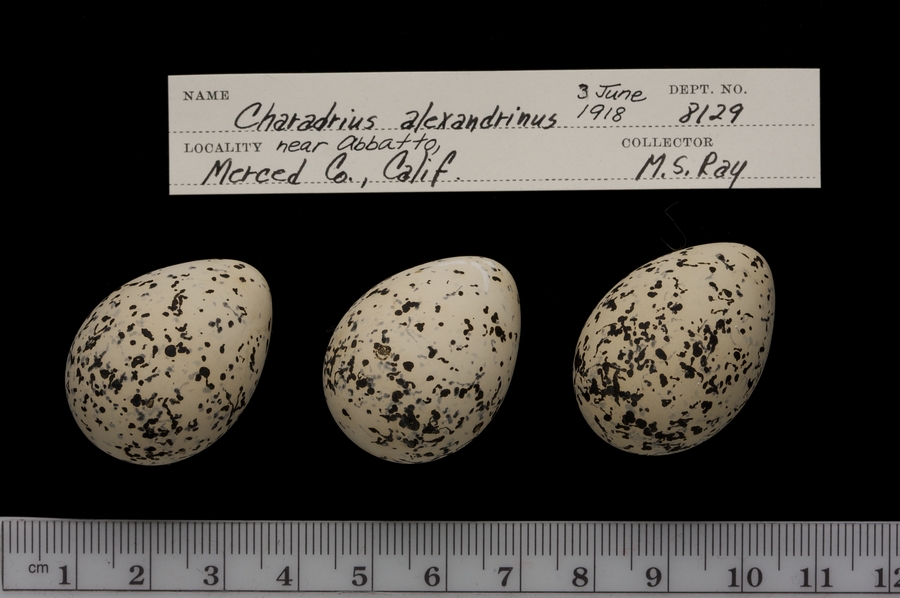 NAME Charadrius alexandrinus 3 June 1918 DEPT. NO. 8129
LOCALITY near Abbatto, Merced Co., Calif. COLLECTOR M.S. Ray
cm 1 2 3 4 5 6 7 8 9 10 11 12